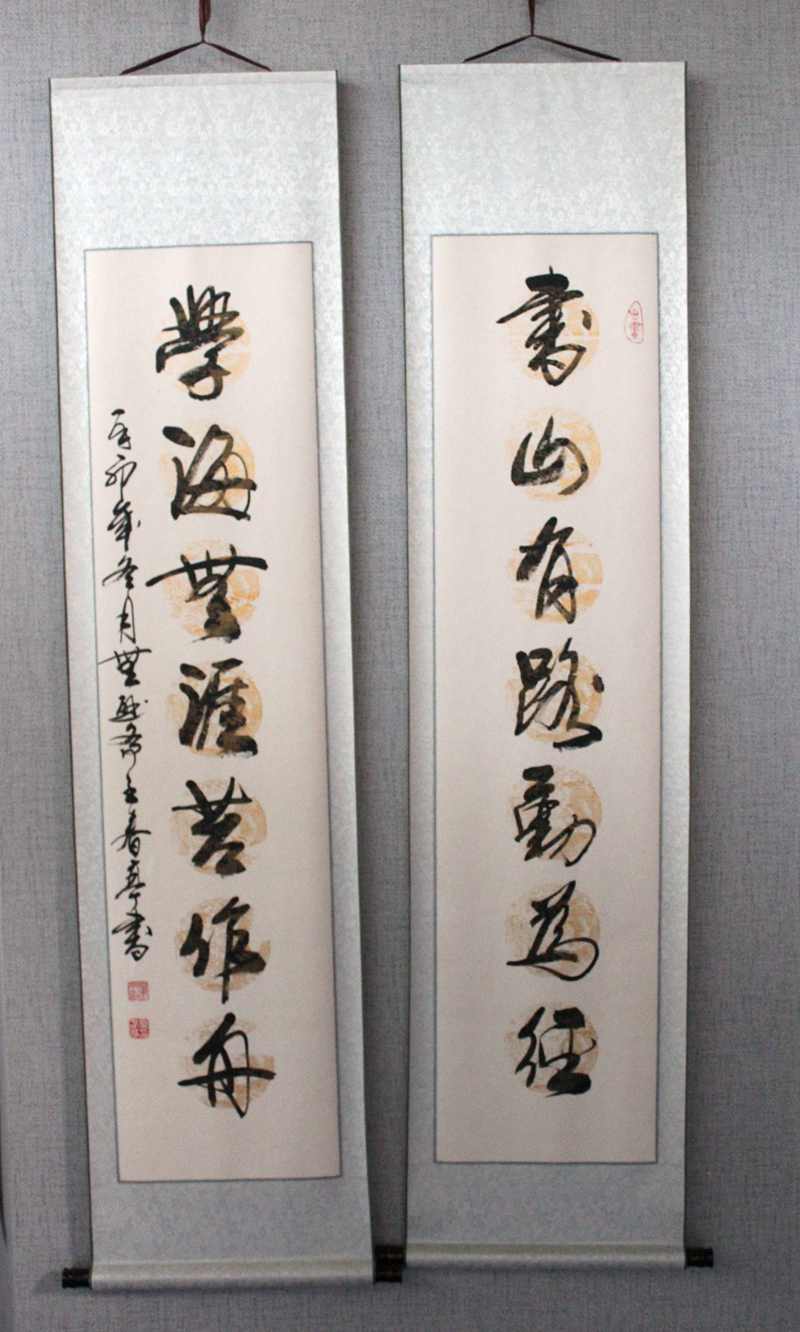 書山有路勤為徑
學海無涯苦作舟
辛卯年冬月無
王春
書